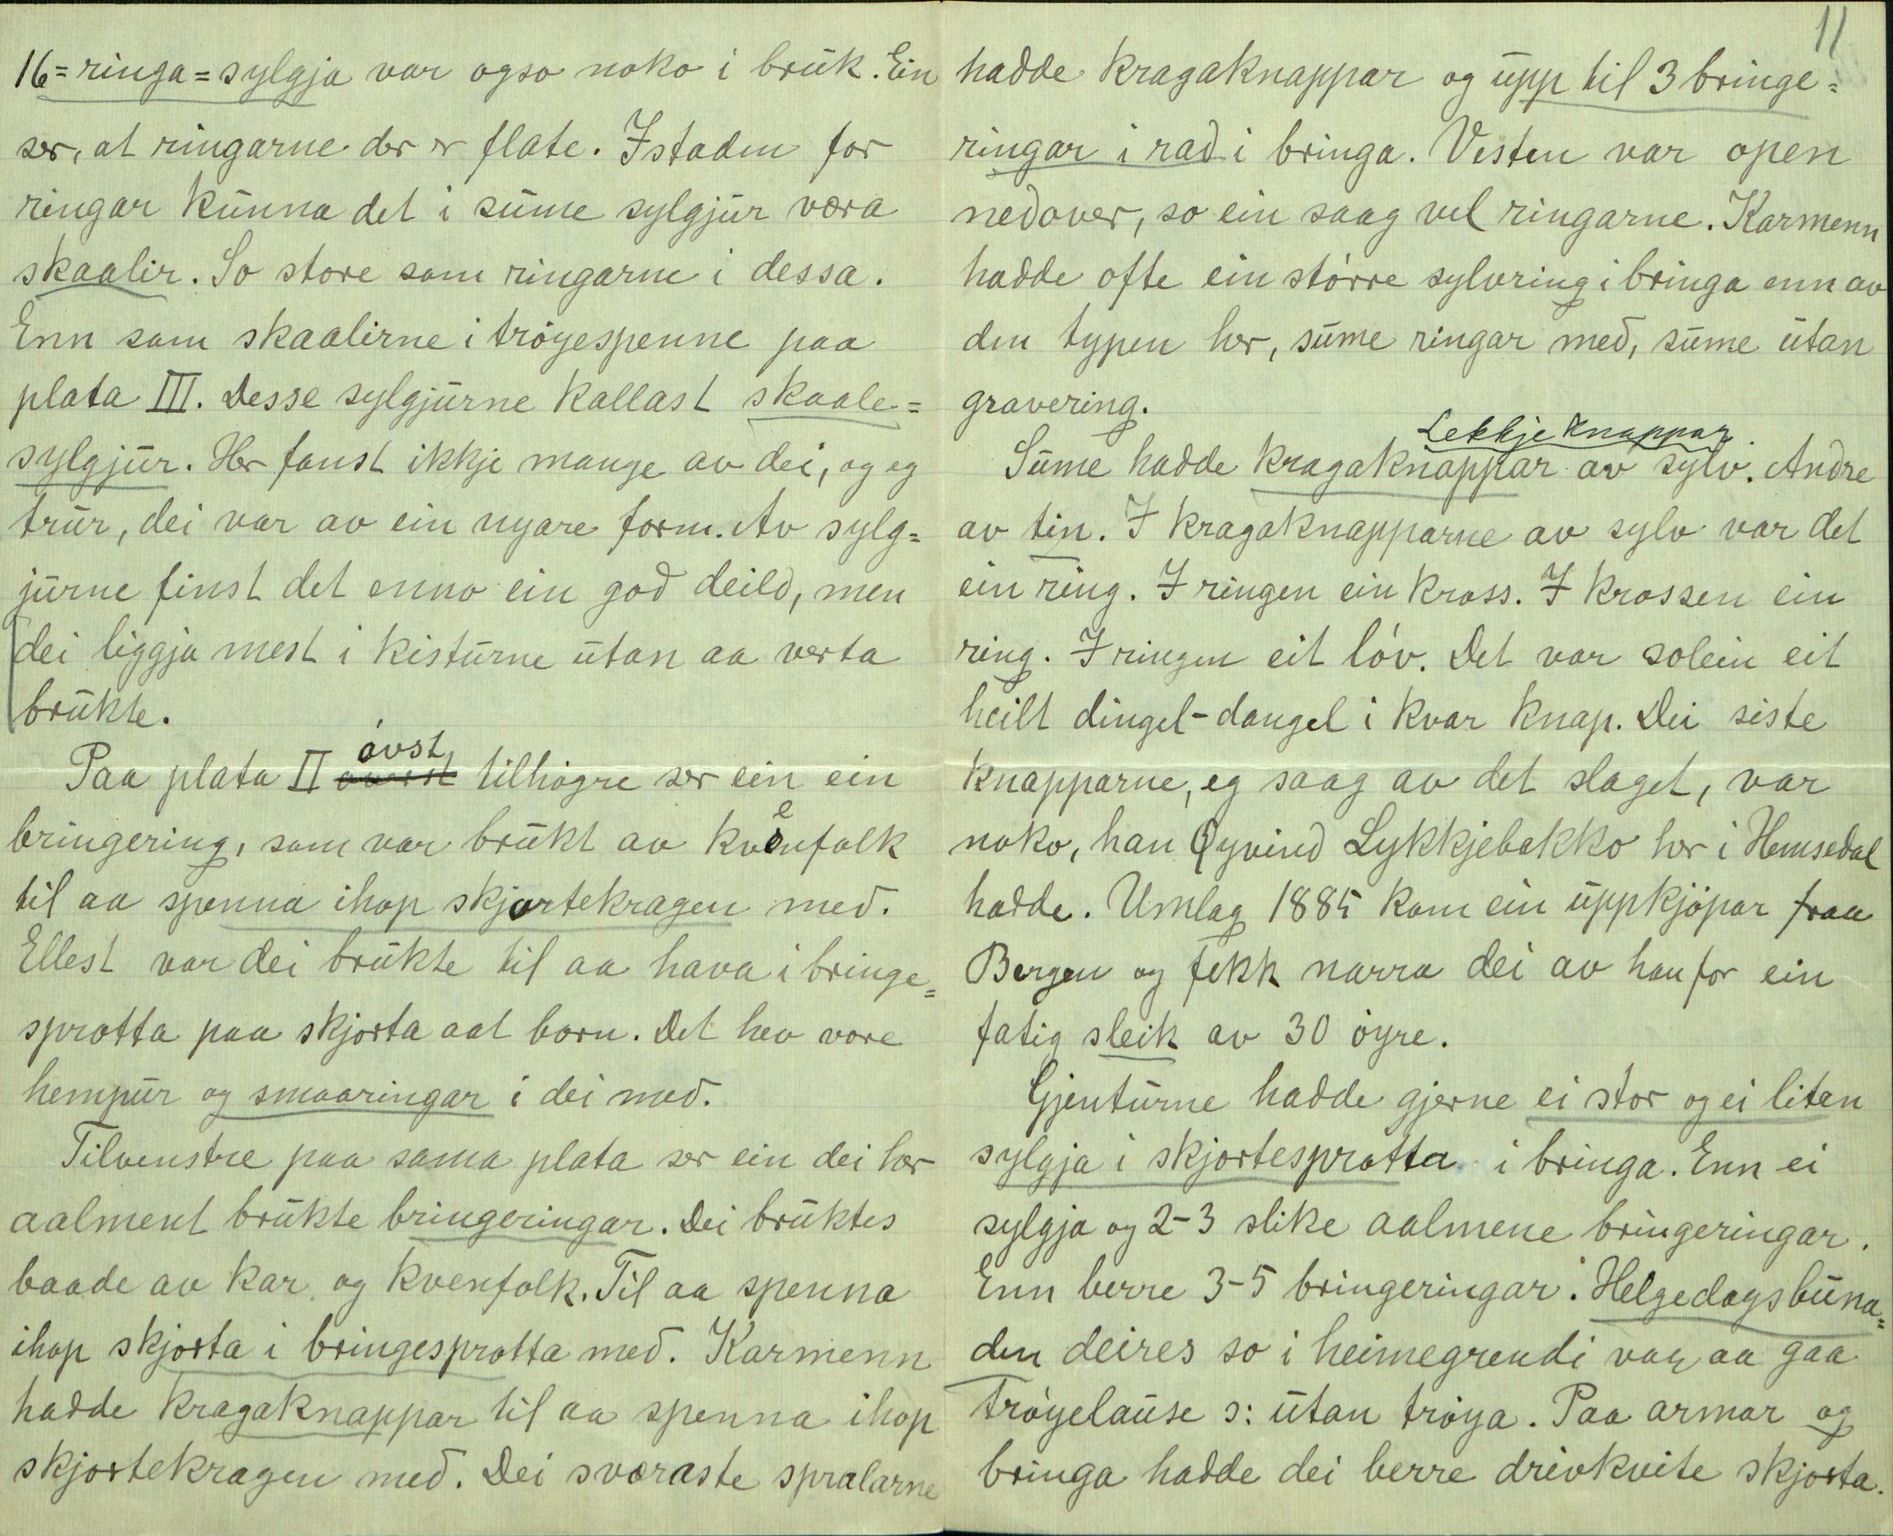 16=ringa=sylgja var ogso noko i bruk. Ein
ser, at ringarne der er flate. Istaden for
ringar kunna det i sume sylgjur væra
skaalir. So store som ringarne i dessa.
Enn som skaalirne i trøyespenne paa
plata III. Desse sylgjurne kallast skaale=
sylgjur. Her fanst ikkje mange av dei, og eg
trur, dei var av ein nyare form. Av sylg=
jurne finst det enno ein god deild, men
dei liggja mest i kisturne utan aa verta
brukte.
Paa plata II óvst tilhøgre ser ein ein
bringering, som var brukt av kvenfolk
til aa spenna ihop skjortekragen med.
Ellest var dei brukte til aa hava i bringe=
sprotta paa skjorta aat born. Det hev vore
hempur og smaaringar i dei med.
Tilvenstre paa sama plata ser ein dei her
aalment brukte bringeringar. Dei bruktes
baade av kar og kvenfolk. Til aa spenna
ihop skjorta i bringesprotta med. Karmenn
hadde kragaknappar til aa spenna ihop
skjortekragen med. Dei sværaste spralarne
11
hadde kragaknappar og upp til 3 bringe=
ringar i rad i bringa. Vesten var open
nedover, so ein saag vel ringarne. Karmenn
hadde ofte ein større sylvring i bringa enn av
den typen her, sume ringar med, sume utan
gravering.
Lekkjeknappar
Sume hadde kragaknappar av sylv. Andre
av tin. I kragaknapparne av sylv var det
ein ring. I ringen ein kross. I krossen ein
ring. I ringen eit løv. Det var solein eit
heilt dingel-dangel i kvar knap. Dei siste
knapparne, eg saag av det slaget, var
noko, han Øyvind Lykkjebakko her i Hemsedal
hadde. Umlag 1885 kom ein uppkjøpar fraa
Bergen og fekk narra dei av han for ein
fatig sleik av 30 øyre.
Gjenturne hadde gjerne ei stor og ei liten
sylgja i skjortesprotta i bringa. Enn ei
sylgja og 2-3 slike aalmene bringeringar.
Enn berre 3-5 bringeringar. Helgedagsbuna=
den deires so i heimegrendi var aa gaa
trøyelause ɔ: utan trøya. Paa armar og
bringa hadde dei berre drivkvite skjorta.